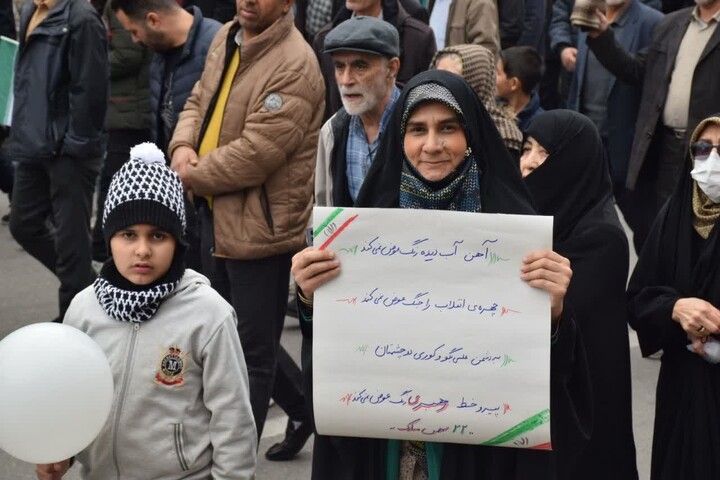 آهن آب دیده رنگ عوض می‌کند
چهره‌ی انقلاب را جنگ عوض می‌کند
به دشمن علی گو و کوری دو چشمتان
پیرو خط رهبری رنگ عوض می‌کند
۲۲ بهمن مبارک
M